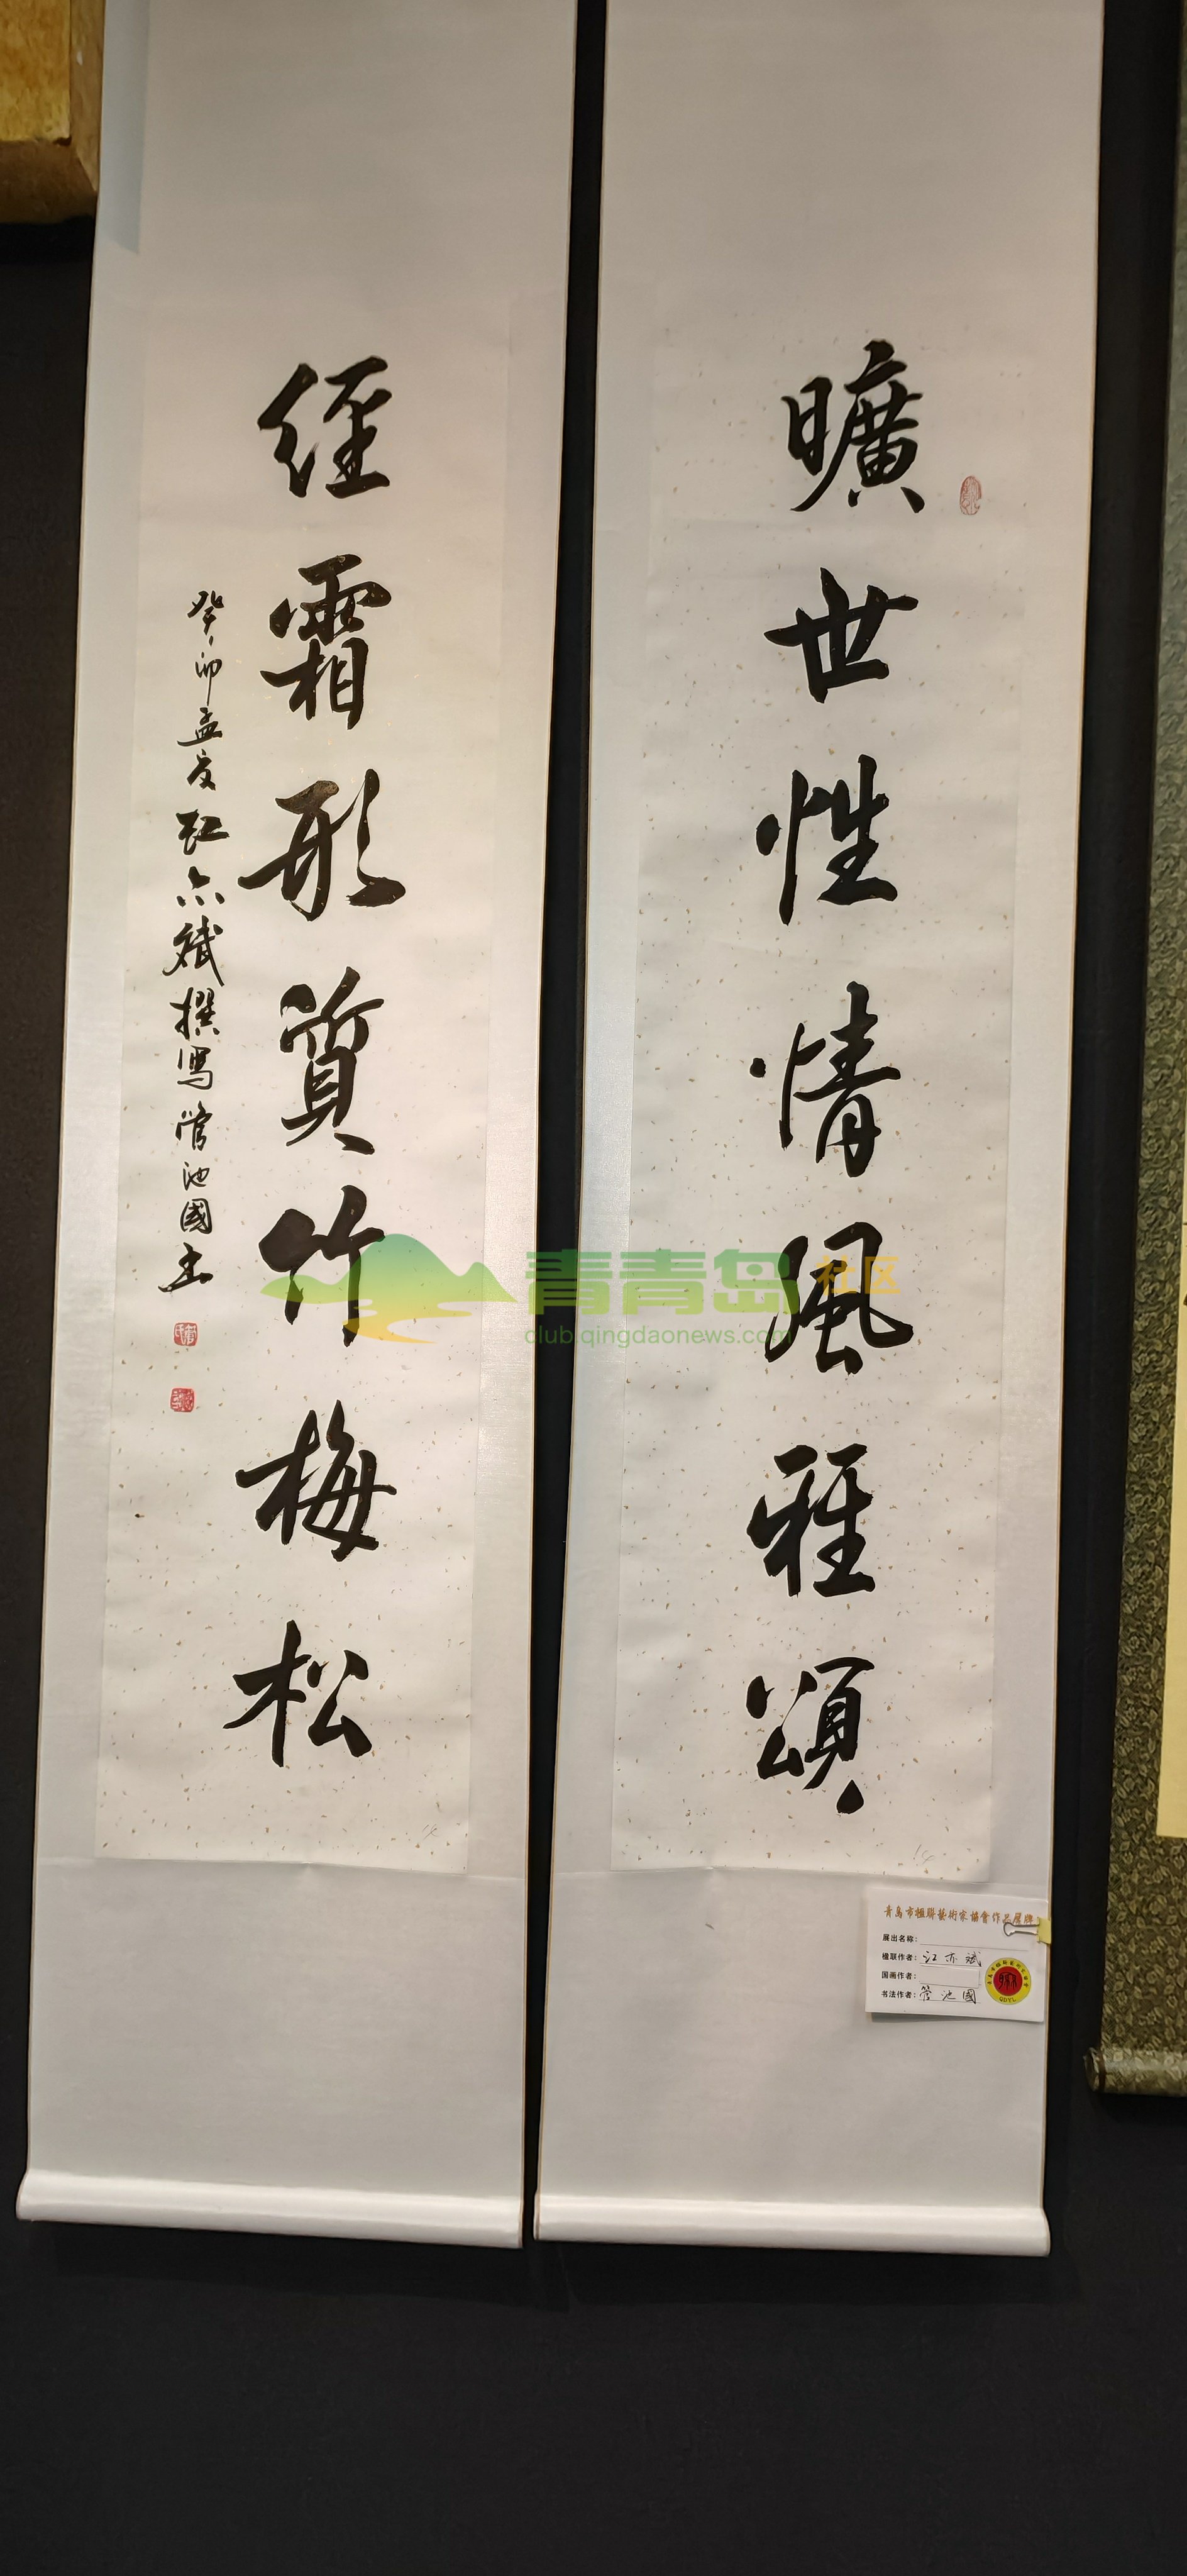 曠世性情風雅頌
經霜形質竹梅松
癸卯孟夏江亦斌撰寫管池國書
青青岛社区
club.qingdaonews.com
青島市楹聯藝術家協會作品展牌
展出名称：
楹联作者：江亦斌
国画作者：
书法作者：管池國
QDYL